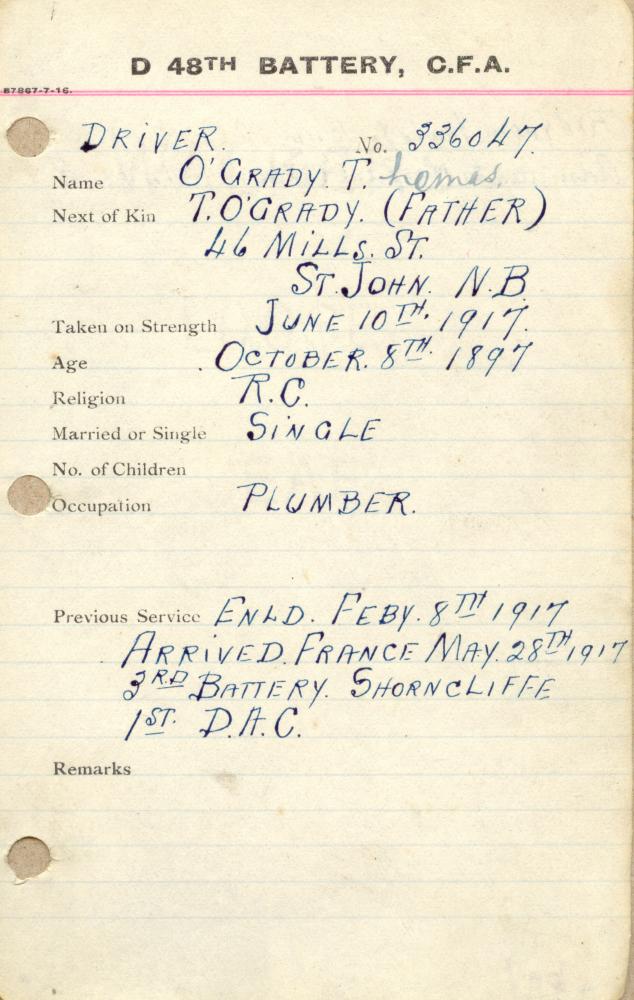 D 48TH BATTERY, C.F.A.
87867-7-16.
DRIVER. No. 336047.
Name O'GRADY. T. homas.
Next of Kin T. O'GRADY. (FATHER)
46 MILLS. ST.
ST. JOHN. N.B.
Taken on Strength JUNE 10TH. 1917.
Age . OCTOBER. 8TH. 1897
Religion R.C.
Married or Single SINGLE
No. of Children
Occupation PLUMBER.
Previous Service ENLD. FEBY. 8TH 1917
ARRIVED. FRANCE MAY. 28TH 1917
3RD BATTERY. SHORNCLIFFE
1ST. D.A.C.
Remarks